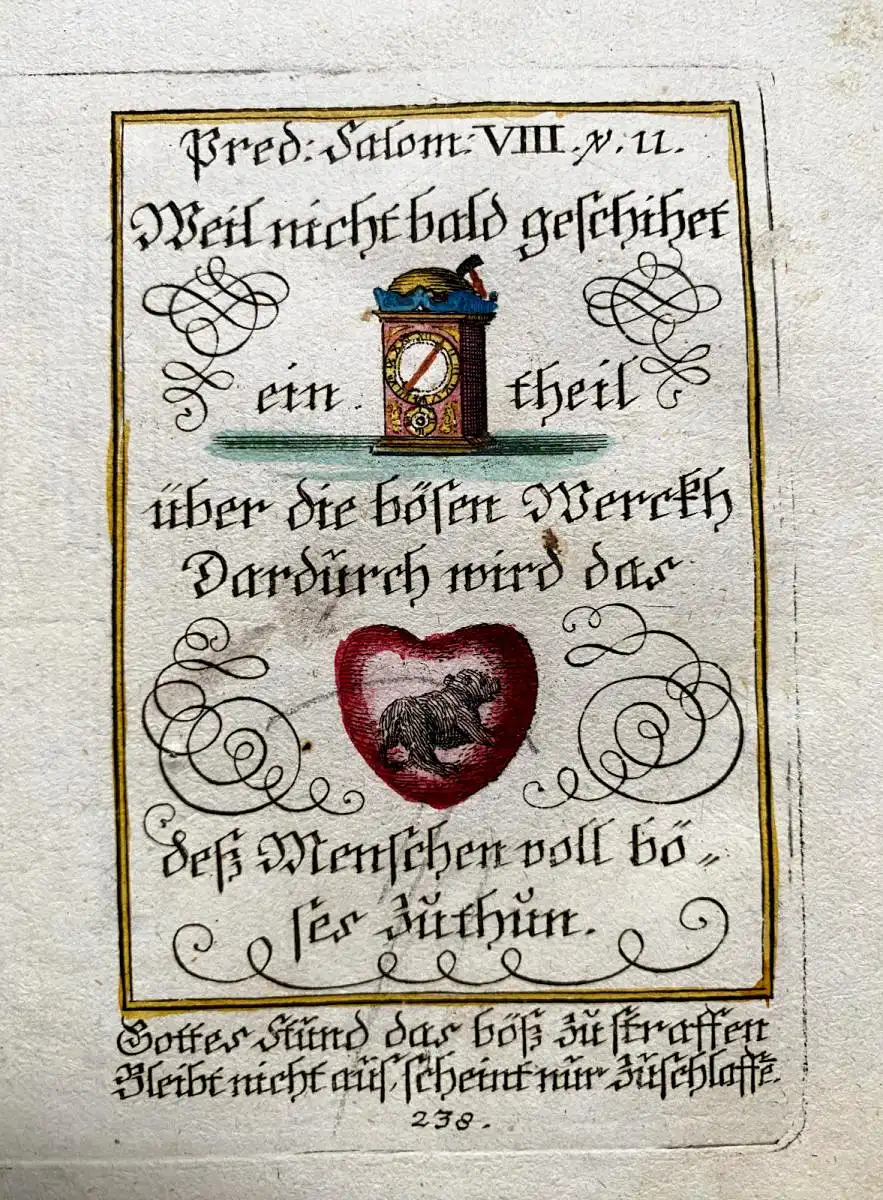 Pred: Salom: VIII. v. 11.
Weil nicht bald geschihet
ein theil
über die bösen Werckh
Dardŭrch wird das
deß Menschen voll bö„
ses Zŭthŭn.
Gottes Stŭnd das böß Zŭ straffen
Bleibt nicht aŭs, scheint nŭr Zŭ schlaffē.
238.